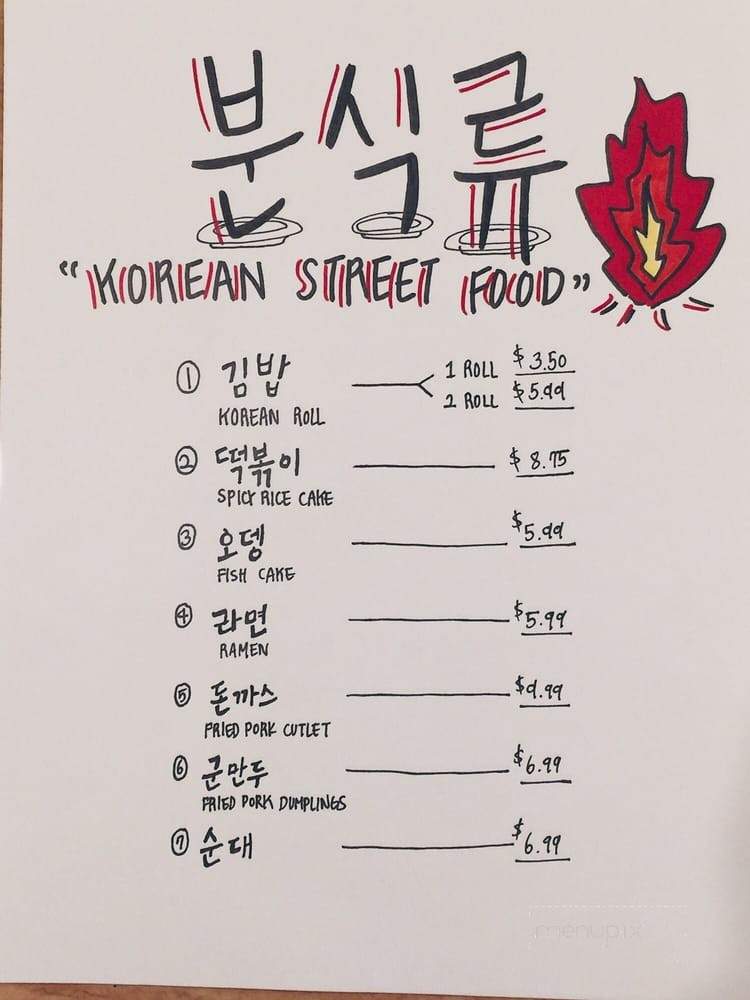 분식류
“KOREAN STREET FOOD”
① 김밥 1 ROLL $3.50
2 ROLL $5.99
KOREAN ROLL
② 떡볶이 $8.75
SPICY RICE CAKE
③ 오뎅 $5.99
FISH CAKE
④ 라면 $5.99
RAMEN
⑤ 돈까스 $9.99
FRIED PORK CUTLET
⑥ 군만두 $6.99
FRIED PORK DUMPLINGS
⑦ 순대 $6.99
menupix